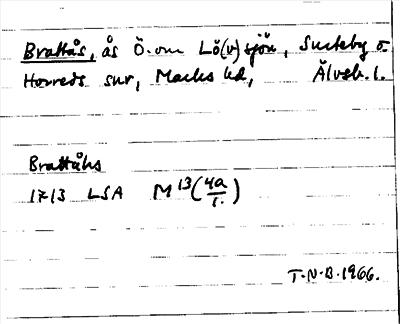 Brattås, ås Ö. om Lö(v)sjön, Surteby o.
Horreds snr, Marks hd, Älvsb. l.
Brattåhs
1713 LSA M 13 (4a/1.)
T.N.B. 1966.